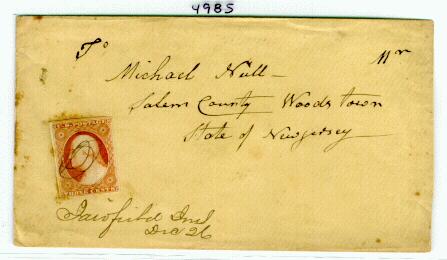 4985
To
Mr
Michael Null
Salem County Woodstown
State of Newjersey
U.S. POSTAGE
THREE CENTS
Fairfield Ind
Dec 26